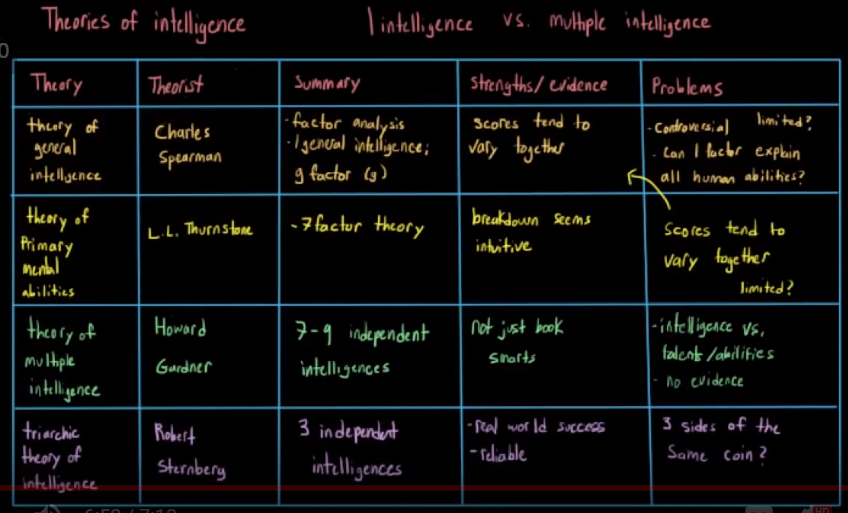 Theories of intelligence
1 intelligence vs. multiple intelligence
Theory
Theorist
Summary
Strengths/evidence
Problems
theory of
general
intelligence
Charles
Spearman
- factor analysis
- 1 general intelligence;
g factor (g)
scores tend to
vary together
limited?
- controversial
- can 1 factor explain
all human abilities?
theory of
Primary
mental
abilities
L.L. Thurnstone
- 7 factor theory
breakdown seems
intuitive
scores tend to
vary together
limited?
theory of
multiple
intelligence
Howard
Gardner
7-9 independent
intelligences
not just book
smarts
- intelligence vs.
talents/abilities
- no evidence
triarchic
theory of
intelligence
Robert
Sternberg
3 independent
intelligences
- real world success
- reliable
3 sides of the
same coin?
HD